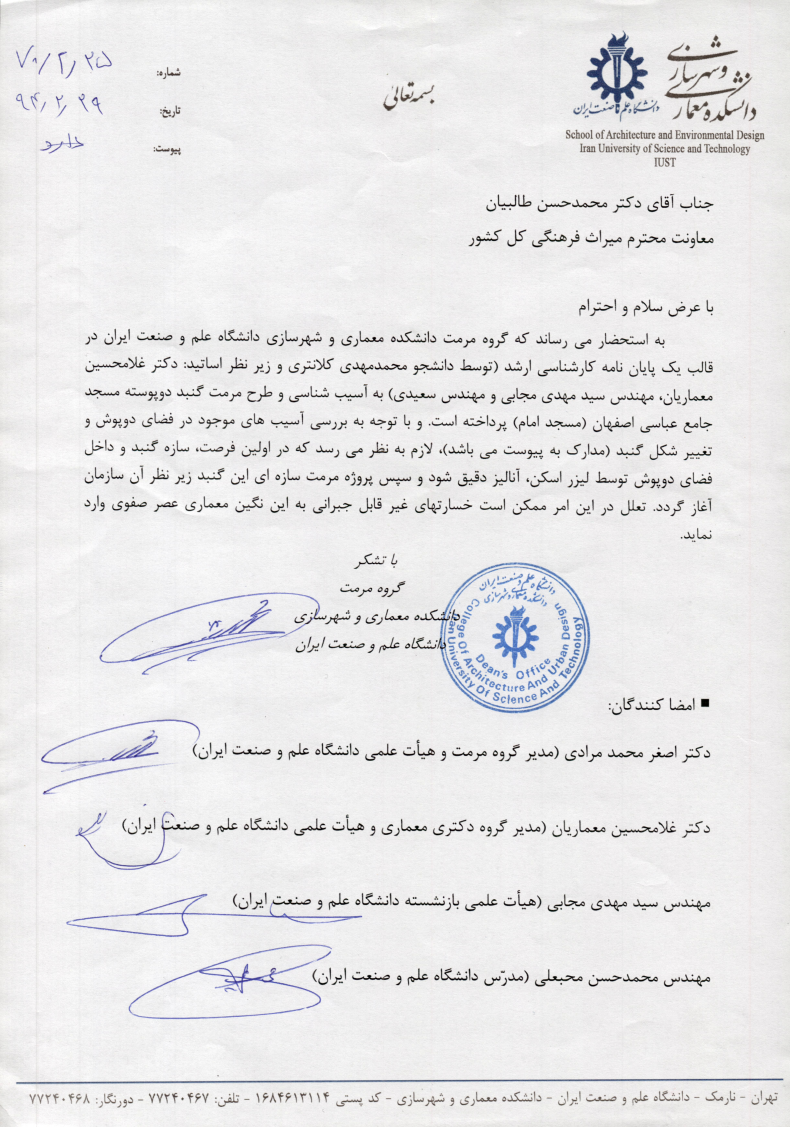 بسمه تعالی
دانشکده معماری
و شهرسازی
دانشگاه علم و صنعت ایران
School of Architecture and Environmental Design
Iran University of Science and Technology
IUST
شماره:
تاریخ: ۹۴٫۲٫۲۹
پیوست: دارد
جناب آقای دکتر محمدحسن طالبیان
معاونت محترم میراث فرهنگی کل کشور
با عرض سلام و احترام
به استحضار می رساند که گروه مرمت دانشکده معماری و شهرسازی دانشگاه علم و صنعت ایران در
قالب یک پایان نامه کارشناسی ارشد (توسط دانشجو محمدمهدی کلانتری و زیر نظر اساتید: دکتر غلامحسین
معماریان، مهندس سید مهدی مجابی و مهندس سعیدی) به آسیب شناسی و طرح مرمت گنبد دوپوسته مسجد
جامع عباسی اصفهان (مسجد امام) پرداخته است. و با توجه به بررسی آسیب های موجود در فضای دوپوش و
تغییر شکل گنبد (مدارک به پیوست می باشد)، لازم به نظر می رسد که در اولین فرصت، سازه گنبد و داخل
فضای دوپوش توسط لیزر اسکن، آنالیز دقیق شود و سپس پروژه مرمت سازه ای این گنبد زیر نظر آن سازمان
آغاز گردد. تعلل در این امر ممکن است خسارتهای غیر قابل جبرانی به این نگین معماری عصر صفوی وارد
نماید.
با تشکر
گروه مرمت
دانشکده معماری و شهرسازی
دانشگاه علم و صنعت ایران
دانشگاه علم و صنعت ایران
دانشکده معماری و شهرسازی
Dean's Office
College Of Architecture And Urban Design
Iran University Of Science And Technology
■ امضا کنندگان:
دکتر اصغر محمد مرادی (مدیر گروه مرمت و هیأت علمی دانشگاه علم و صنعت ایران)
دکتر غلامحسین معماریان (مدیر گروه دکتری معماری و هیأت علمی دانشگاه علم و صنعت ایران)
مهندس سید مهدی مجابی (هیأت علمی بازنشسته دانشگاه علم و صنعت ایران)
مهندس محمدحسن محبعلی (مدرّس دانشگاه علم و صنعت ایران)
تهران - نارمک - دانشگاه علم و صنعت ایران - دانشکده معماری و شهرسازی - کد پستی ۱۶۸۴۶۱۳۱۱۴ - تلفن: ۷۷۲۴۰۴۶۷ - دورنگار: ۷۷۲۴۰۴۶۸